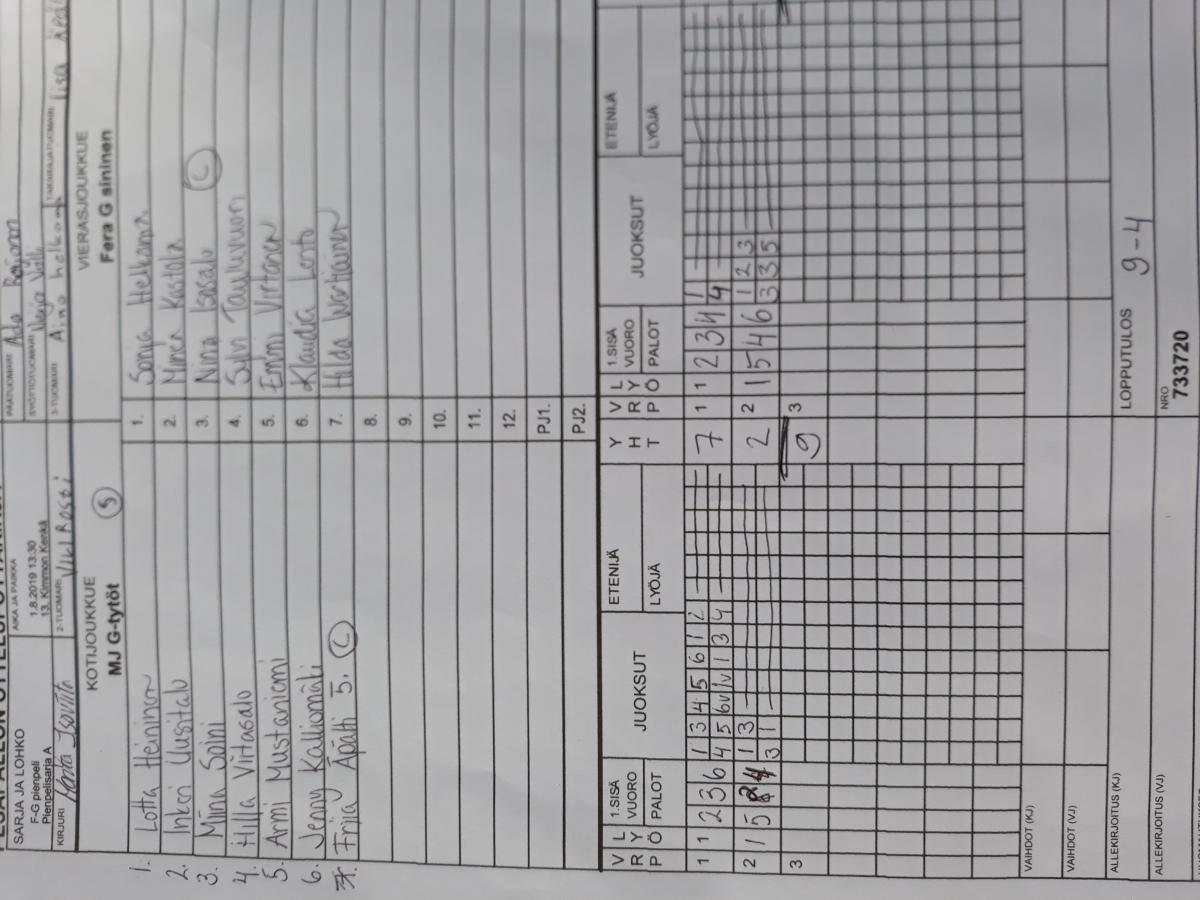 PESÄPALLON OTTELUPÖYTÄKIRJA
SARJA JA LOHKO
F-G pienpeli
Pienpelisarja A
AIKA JA PAIKKA
1.8.2019 13:30
13. Kimmon Kenkä
PÄÄTUOMARI Ada
SYÖTTÖTUOMARI
KIRJURI
2-TUOMARI
3-TUOMARI Aino
TAKARAJATUOMARI Iisa
KOTIJOUKKUE S
MJ G-tytöt
VIERASJOUKKUE
Fera G sininen
1. Lotta Heininen 1. Sonja Helkama
2. Inkeri Uusitalo 2. Minea Kastala
3. Miina Soini 3. Nina Isosalo C
4. Hilla Viitasalo 4. Sylvi Tauluvuori
5. Armi Mustaniemi 5. Emmi Virtanen
6. Jenny Kalliomäki 6. Klaudia Lento
7. Äpätti 5. C 7. Hilda Wartiainen
8.
9.
10.
11.
12.
PJ1.
PJ2.
V R P L Y Ö 1.SISÄ VUORO PALOT JUOKSUT ETENIJÄ LYÖJÄ Y H T V R P L Y Ö 1.SISÄ VUORO PALOT JUOKSUT ETENIJÄ LYÖJÄ
1 1 2 3 6 1 3 4 5 6 1 2 7 1 1 2 3 4 1
4 5 6 V V 1 3 4 4
2 1 5 4 1 3 2 2 1 5 4 6 1 2 3
3 1 3 3 5
3 9 3
VAIHDOT (KJ)
VAIHDOT (VJ)
ALLEKIRJOITUS (KJ) LOPPUTULOS 9-4
ALLEKIRJOITUS (VJ) NRO
733720